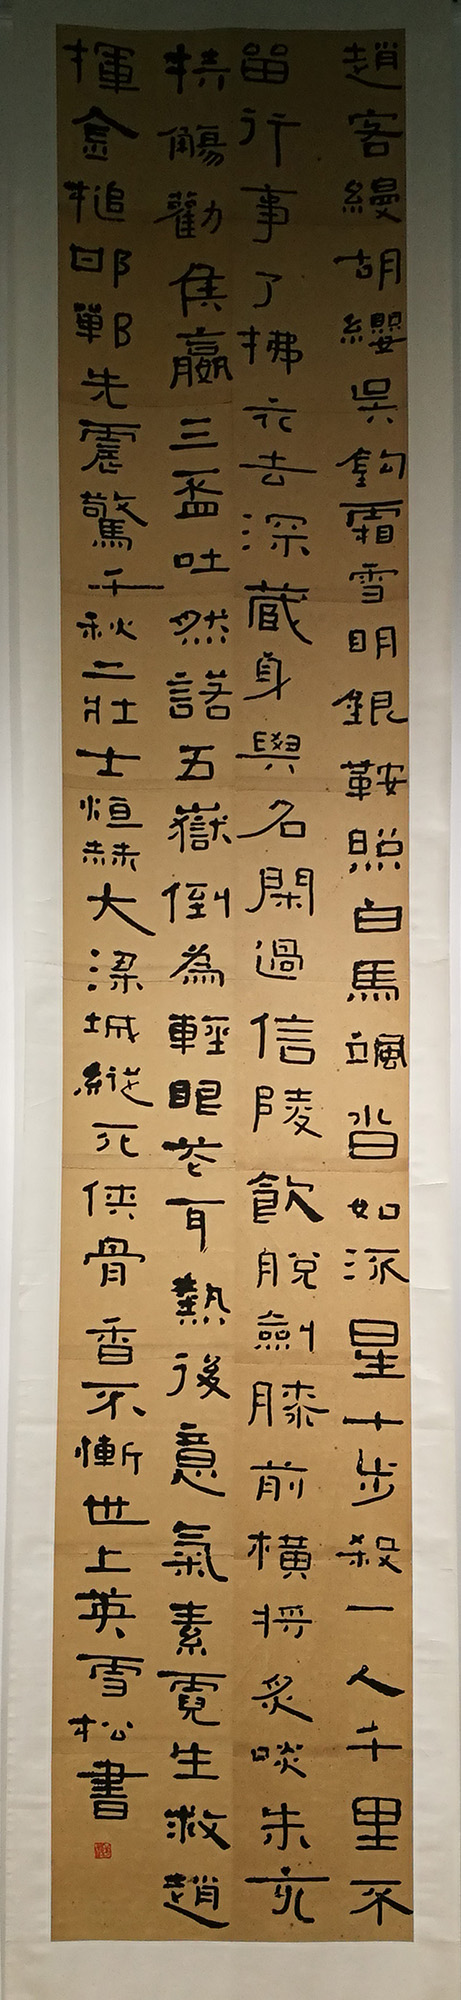 趙客縵胡纓吳鉤霜雪明銀鞍照白馬颯沓如流星十步殺一人千里不
留行事了拂衣去深藏身與名閑過信陵飲脫劍膝前橫將炙啖朱亥
持觴勸侯嬴三盃吐然諾五嶽倒為輕眼花耳熱後意氣素霓生救趙
揮金槌邯鄲先震驚千秋二壯士烜赫大梁城縱死俠骨香不慚世上英雪松書